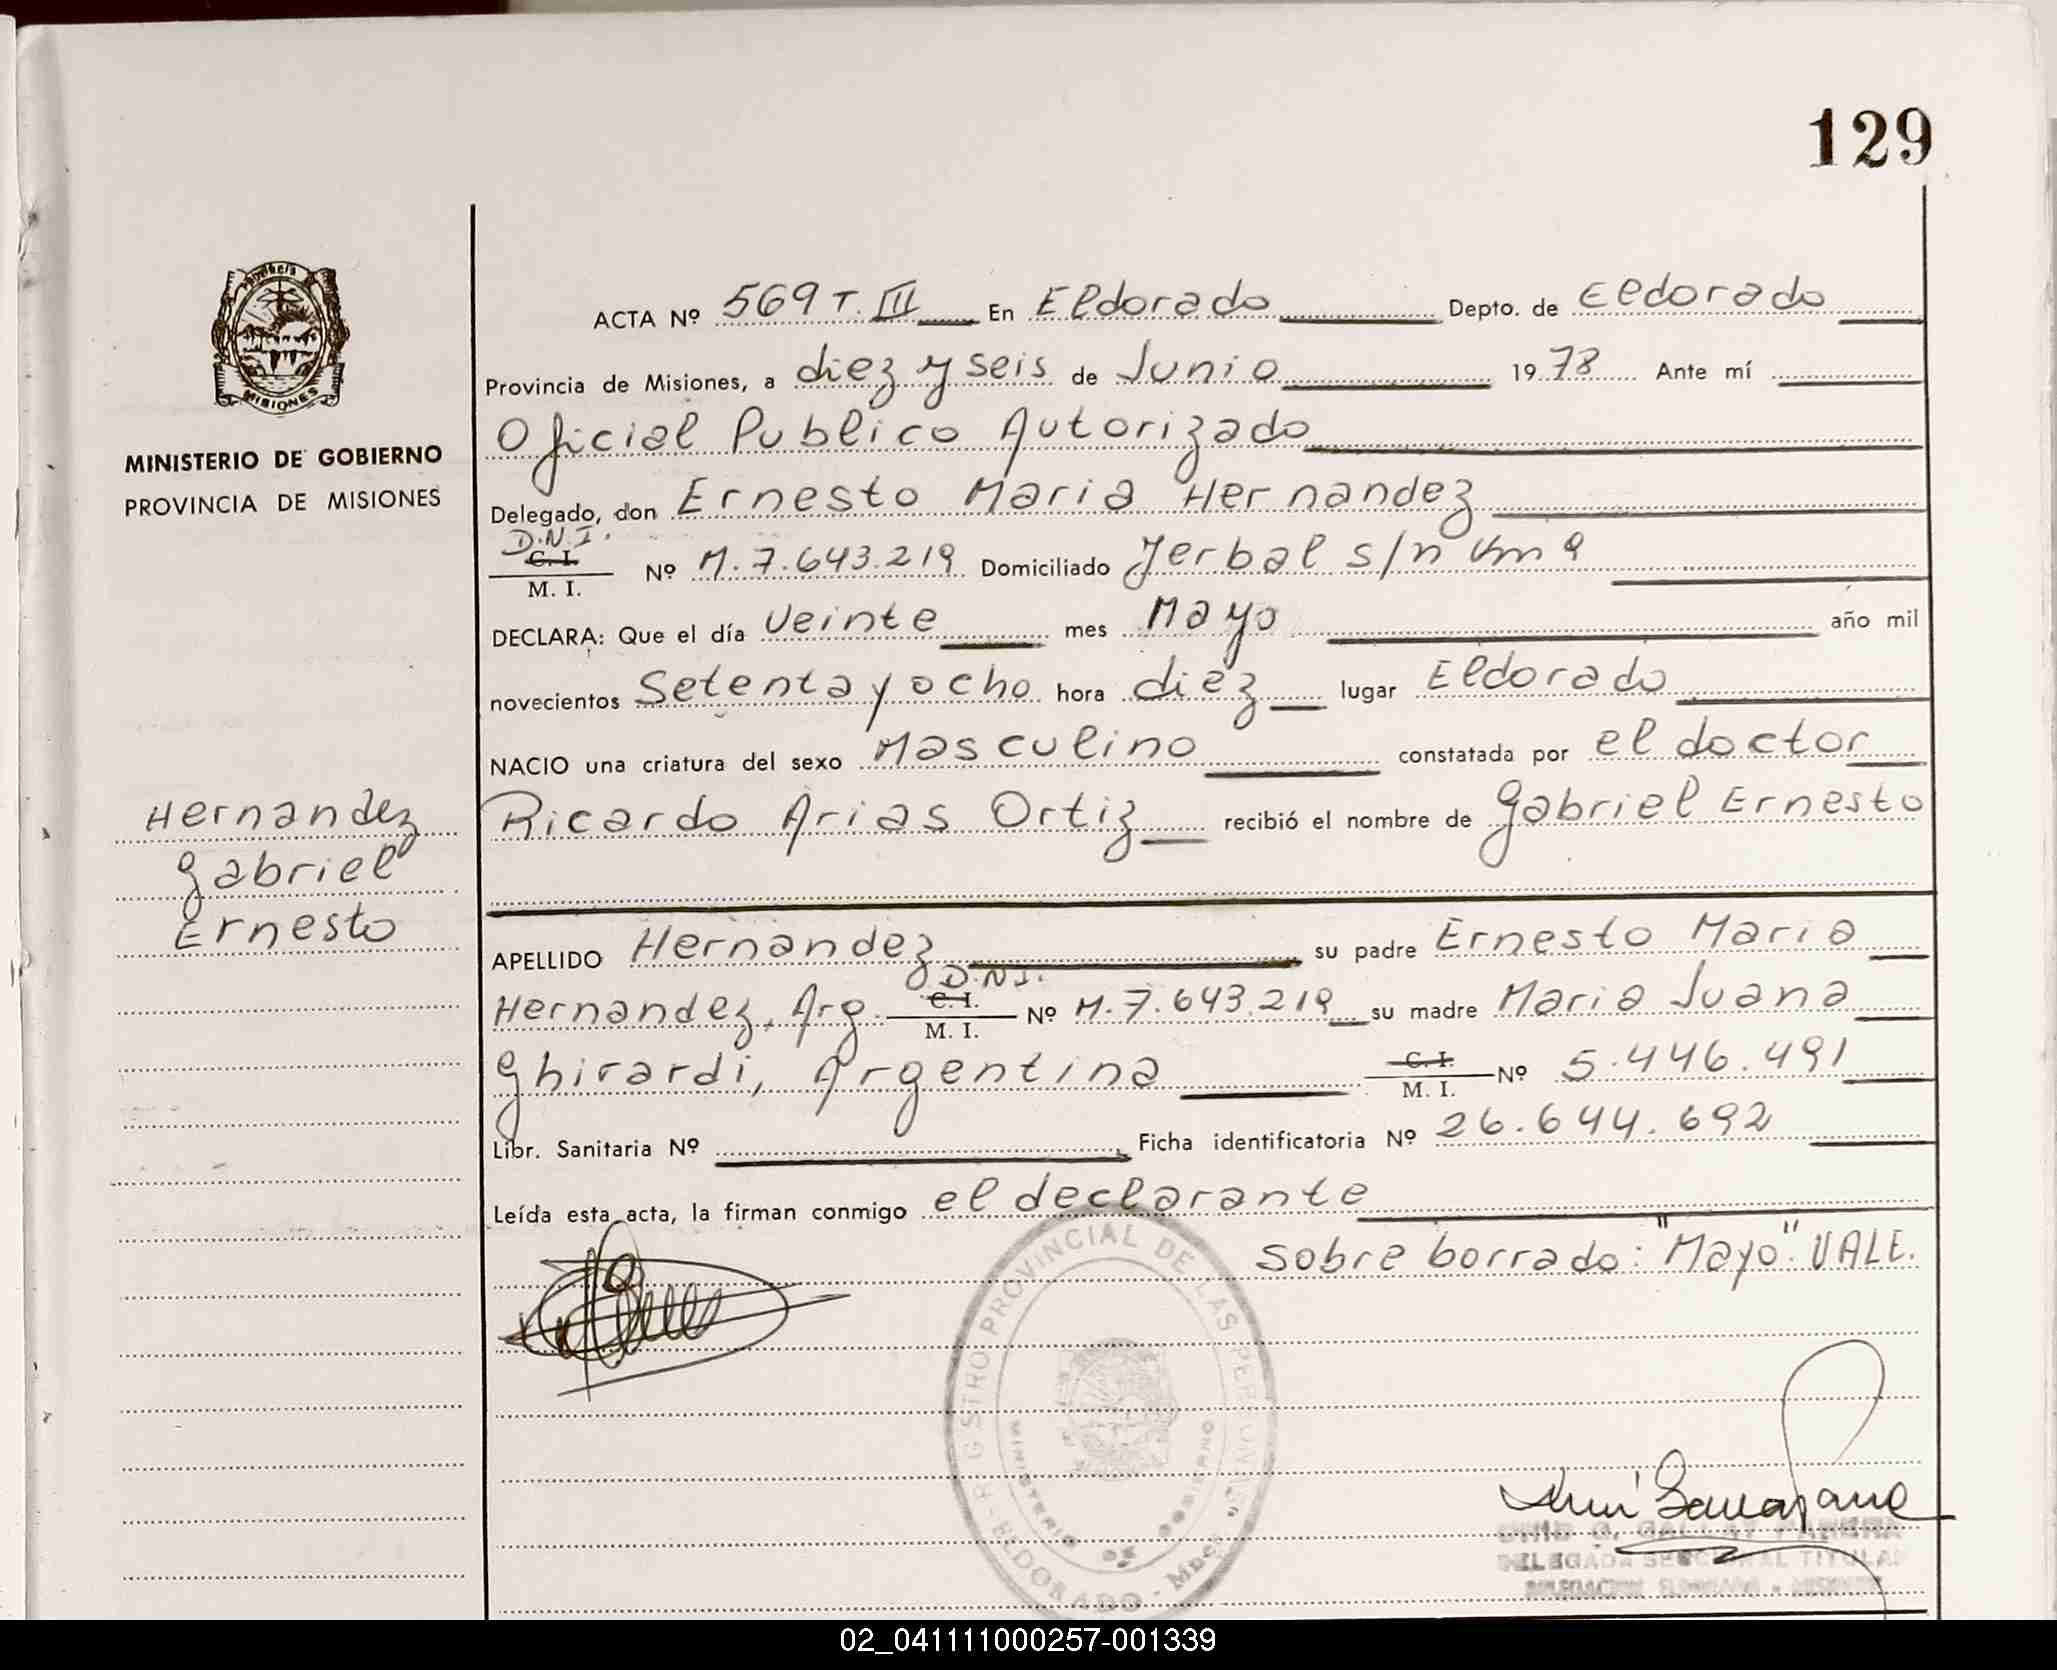 129
MISIONES
MINISTERIO DE GOBIERNO
PROVINCIA DE MISIONES
Hernandez
Gabriel
Ernesto
ACTA Nº 569 T. III En Eldorado Depto. de Eldorado
Provincia de Misiones, a diez y seis de Junio 1978 Ante mí
Oficial Publico Autorizado
Delegado, don Ernesto Maria Hernandez
D.N.I.
C. I.
M. I. Nº M. 7.643.219 Domiciliado Yerbal s/n Km 9
DECLARA: Que el día Veinte mes Mayo año mil
novecientos Setenta y ocho hora diez lugar Eldorado
NACIO una criatura del sexo Masculino constatada por el doctor
Ricardo Arias Ortiz recibió el nombre de Gabriel Ernesto
APELLIDO Hernandez su padre Ernesto Maria
D.N.I.
Hernandez, Arg. C. I. M. I. Nº M. 7.643.219 su madre Maria Juana
Ghirardi, Argentina C. I. M. I. Nº 5.446.491
Libr. Sanitaria Nº Ficha identificatoria Nº 26.644.692
Leída esta acta, la firman conmigo el declarante
Sobre borrado: "Mayo". VALE.
REGISTRO PROVINCIAL DE LAS PERSONAS
MINISTERIO DE GOBIERNO
ELDORADO - Mnes.
DELEGADA SECCIONAL TITULAR
02_041111000257-001339